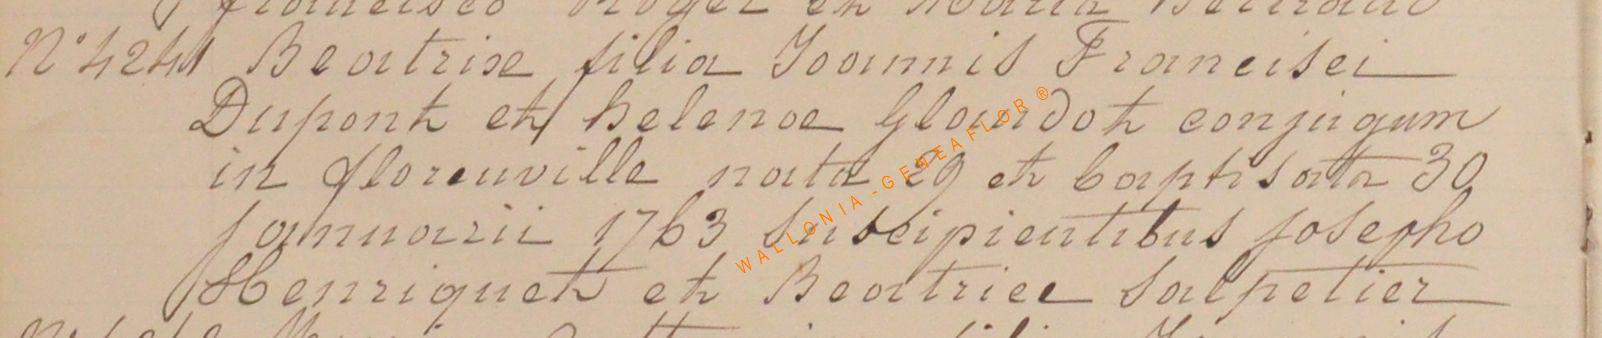 francisco Roger et Maria
N° 4241 Beatrix filia Joannis Francisci
Dupont et helenae Glourdot conjugum
in florenville nata 29 et baptisata 30
januarii 1763 suscipientibus josepho
Henriquet et Beatrice salpetier
WALLONIA-GENEAFLOR®